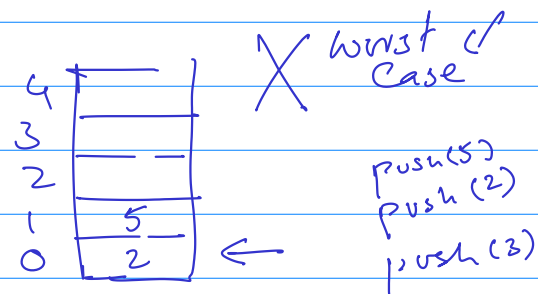 worst
Case
4
3
2
1 5
0 2
push(5)
push(2)
push(3)